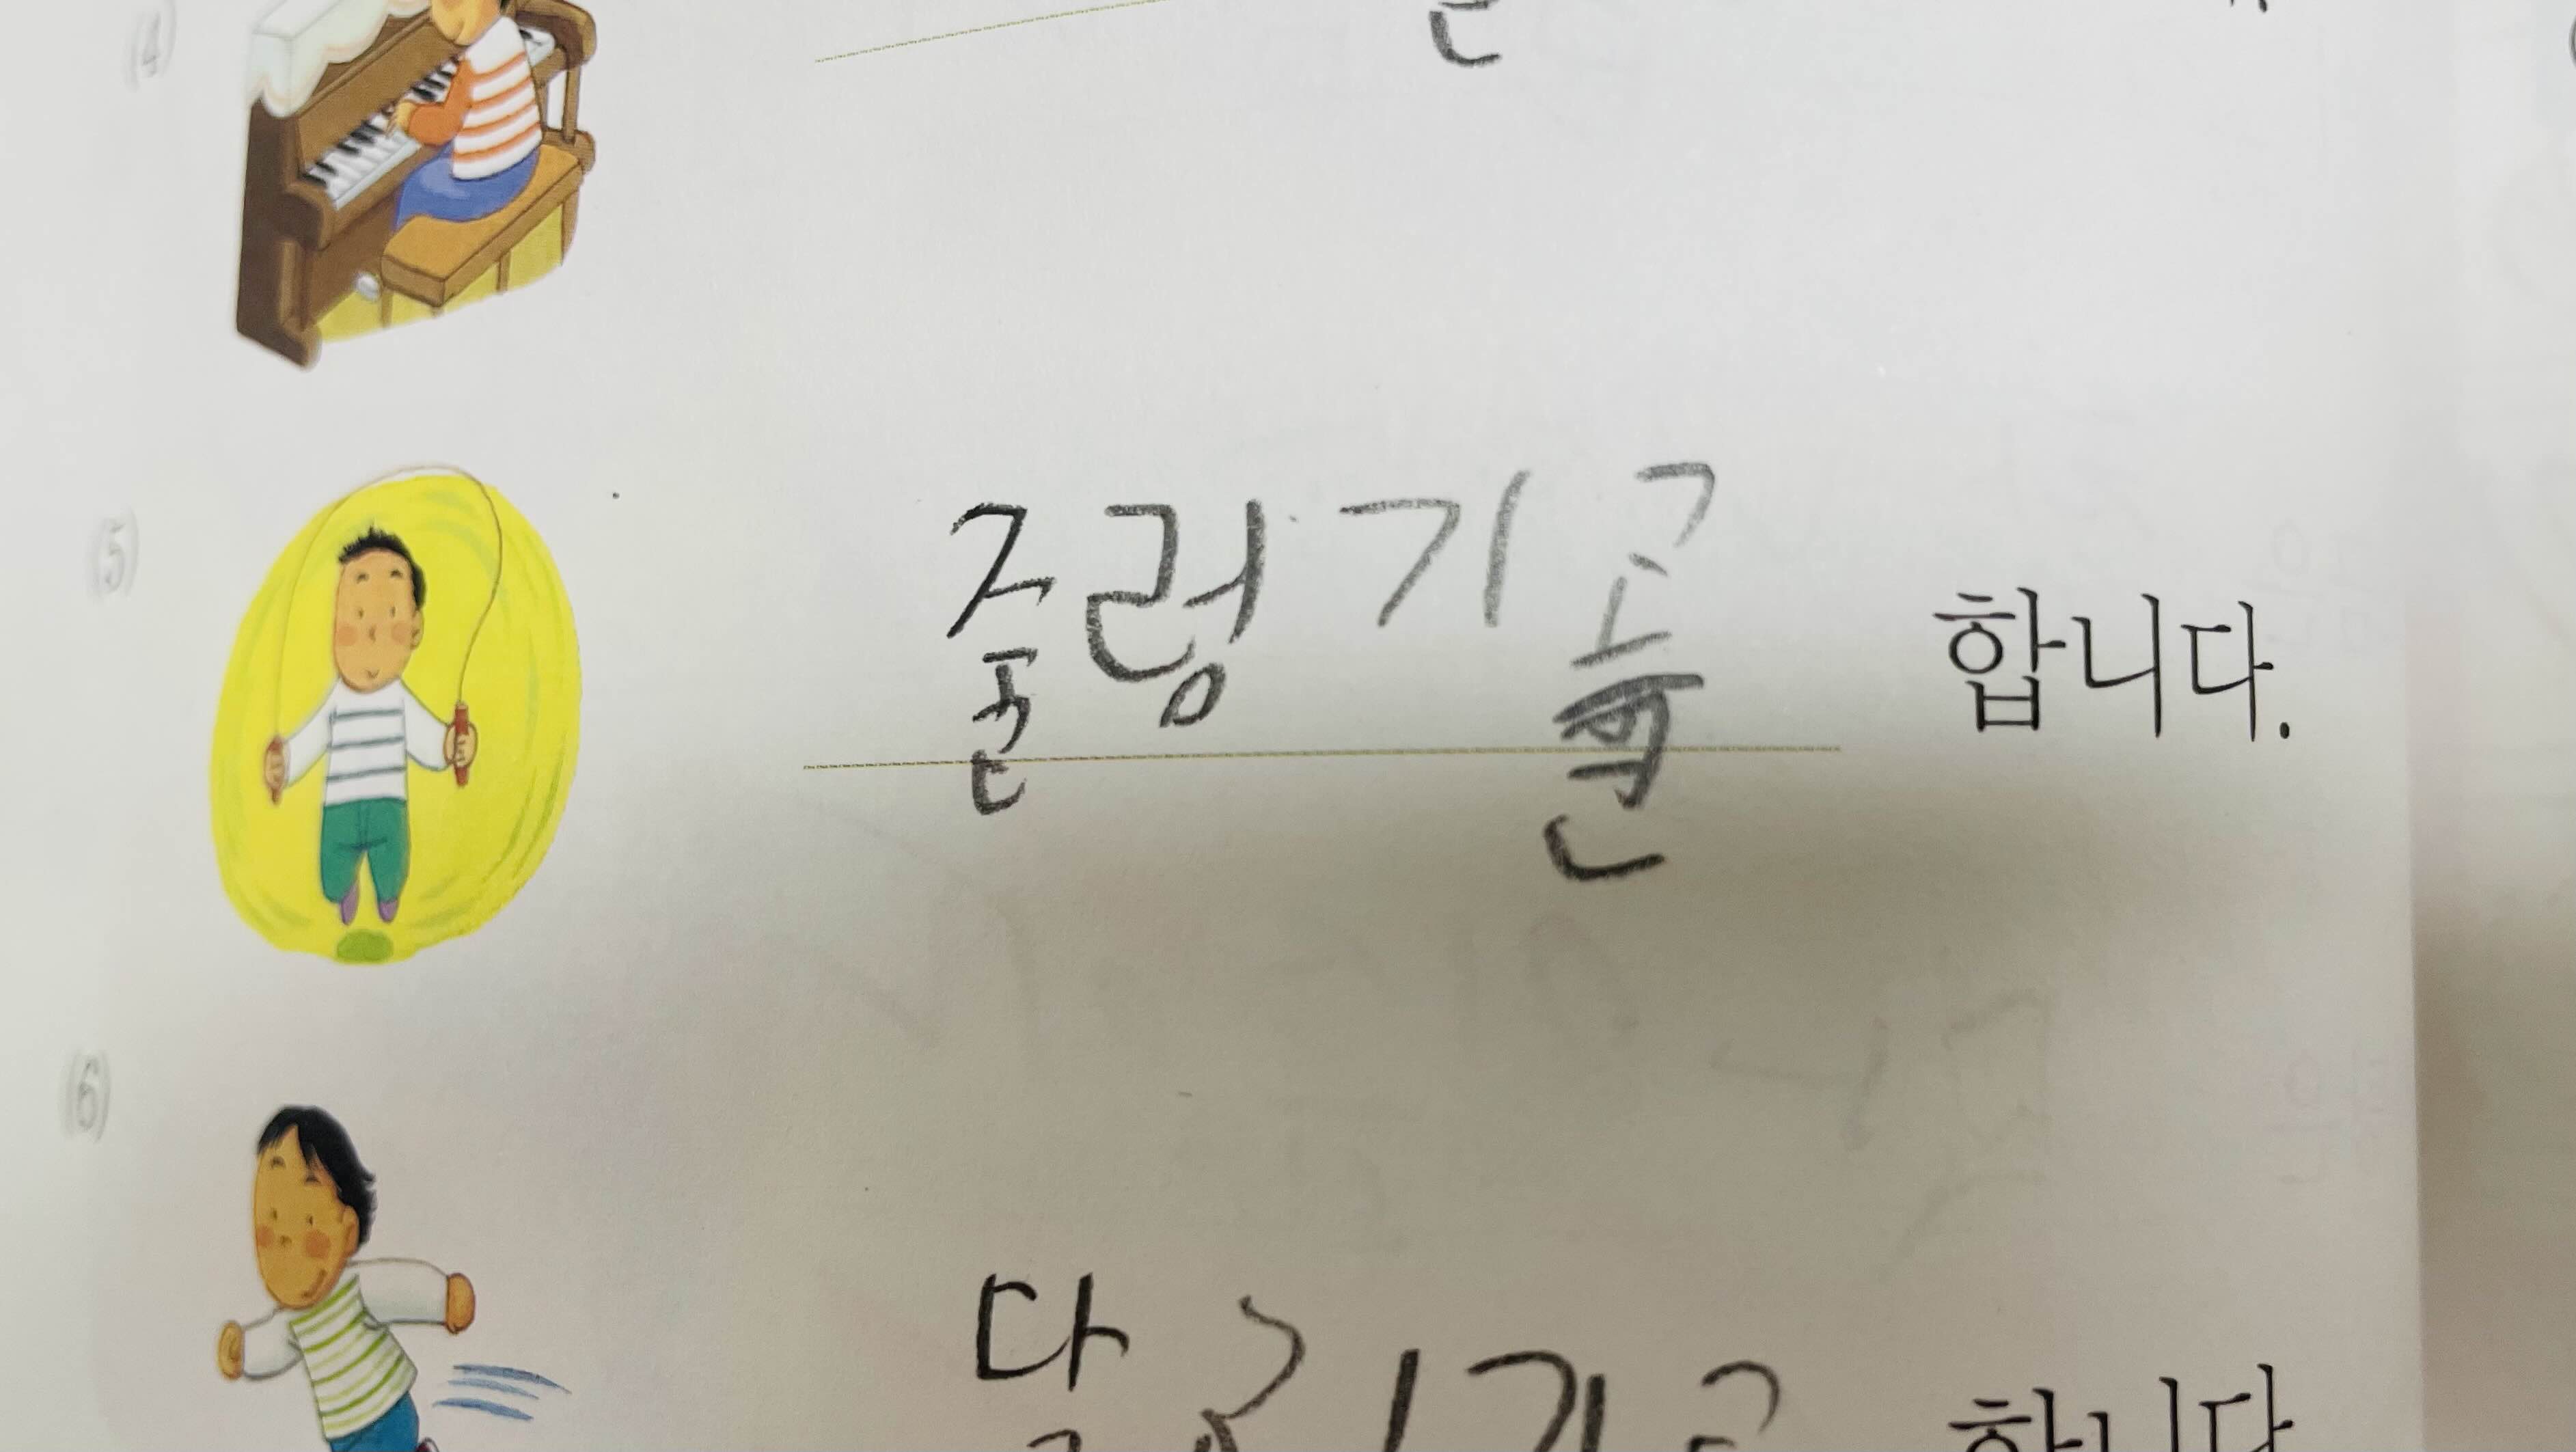 (4)
(5) 줄렁기를 합니다.
(6) 달리기를 합니다